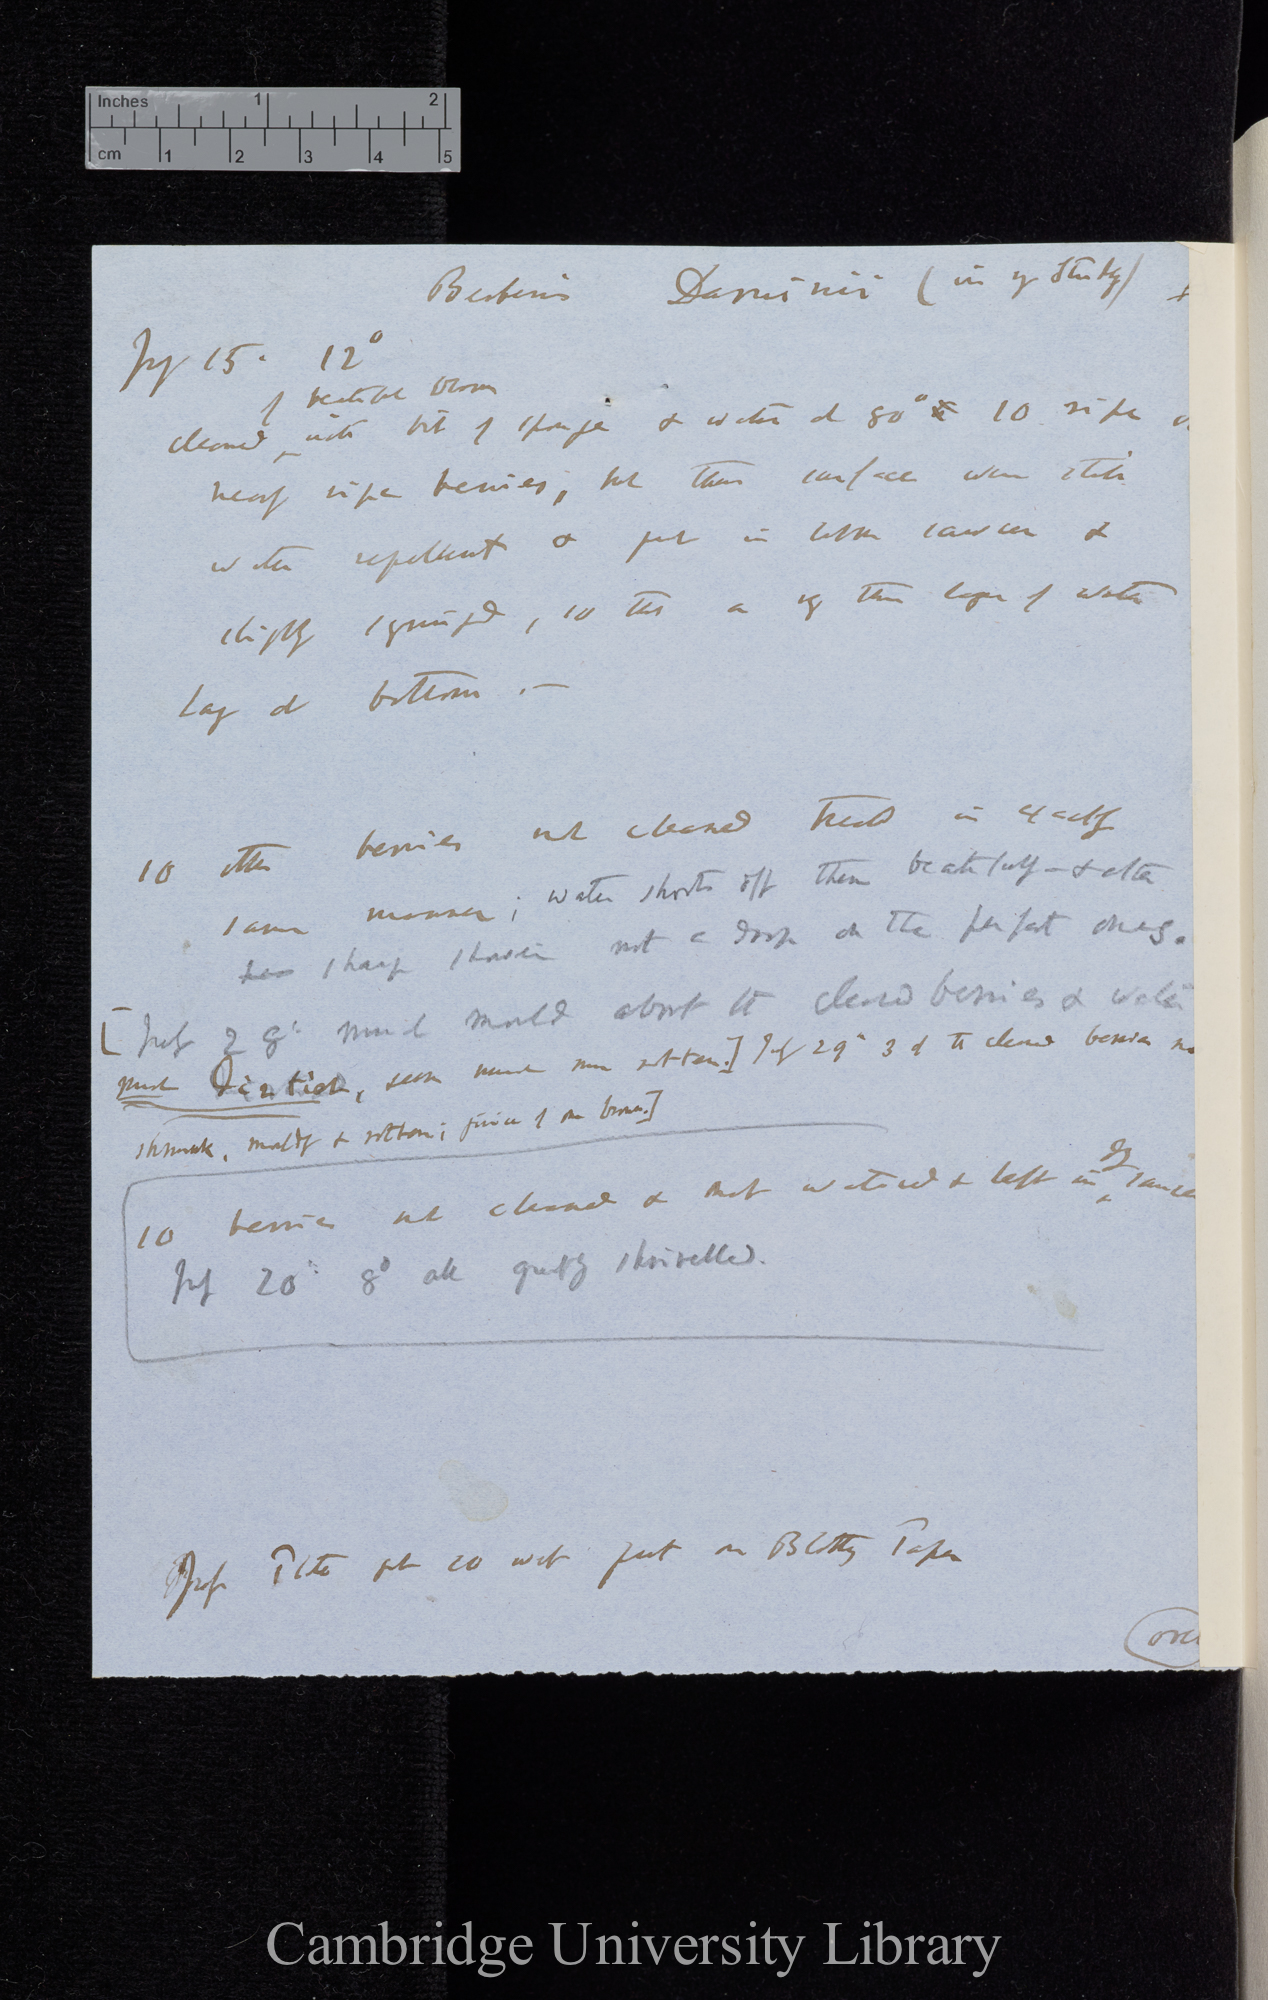 Inches 1 2
cm 1 2 3 4 5
Berberis Darwinii (in my Study)
July 15. 12°
of beautiful bloom
cleaned with bit of sponge & water at 80° 10 ripe or
nearly ripe berries, but their surface were still
water repellent & put in saucer &
slightly syringed, so that a thin layer of water
lay at bottom.—
10 other berries not cleaned treated in exactly
same manner; water shoots off them beautifully — & after
sharp shower not a drop on the perfect ones.
[July mould about the cleaned berries & water
much, seem much more rotten.] July 29° 3 of the cleaned berries
shrunk, mouldy & rotten; juice of one brown.]
10 berries not cleaned & not watered & left in dry saucer
July 20° 8° all greatly shrivelled.
put 20 wet on Blotting Paper
(over
Cambridge University Library